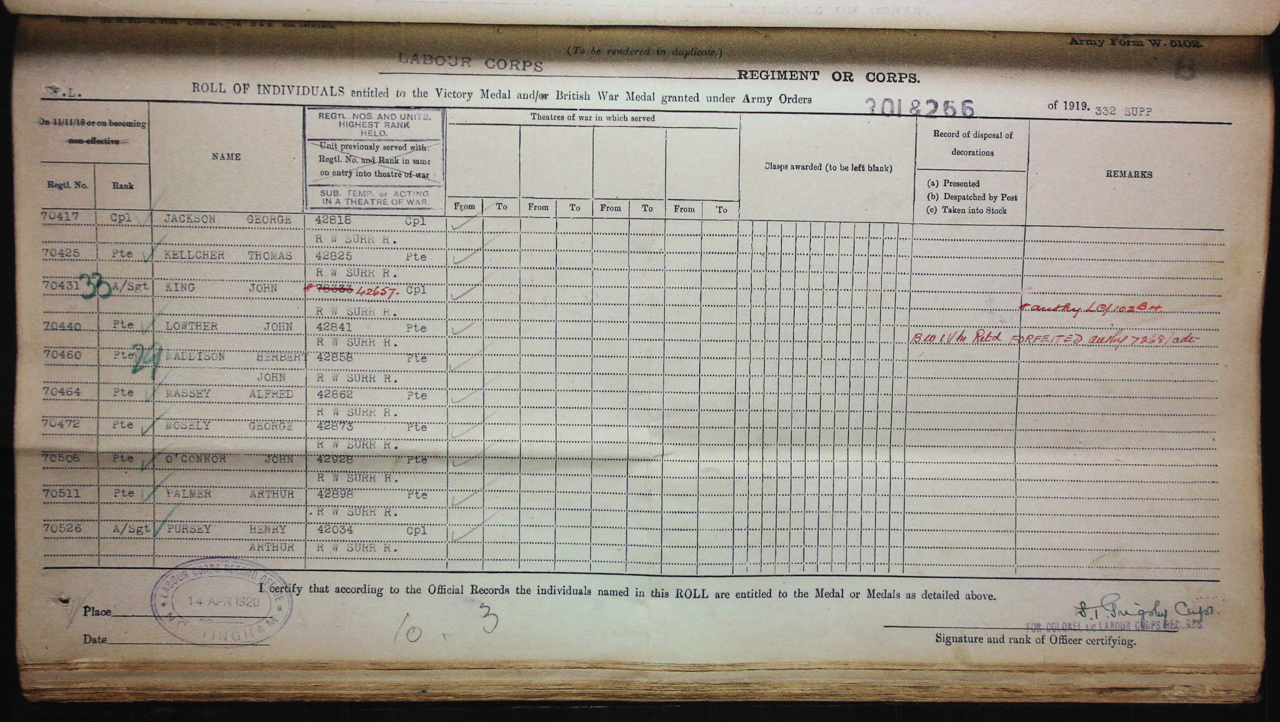 Army Form W. 5102.
(To be rendered in duplicate.)
LABOUR CORPS REGIMENT OR CORPS.
8
ROLL OF INDIVIDUALS entitled to the Victory Medal and/or British War Medal granted under Army Orders 301 & 266 of 1919. 332 SUPP
On 11/11/18 or on becoming non-effective
Regtl. No. Rank
NAME
REGTL. NOS. AND UNITS. HIGHEST RANK HELD.
Unit previously served with. Regtl. No. and Rank in same on entry into theatre of war
SUB. TEMP. or ACTING IN A THEATRE OF WAR.
Theatres of war in which served
From To From To From To From To
Clasps awarded (to be left blank)
Record of disposal of decorations
(a) Presented
(b) Despatched by Post
(c) Taken into Stock
REMARKS
70417 Cpl JACKSON GEORGE 42818 Cpl
R W SURR R.
70425 Pte KELLCHER THOMAS 42825 Pte
R W SURR R.
70431 33 A/Sgt KING JOHN 42657. Cpl
R W SURR R. authy LC/102BH
70440 Pte LOWTHER JOHN 42841 Pte
R W SURR R. FORFEITED authy 7268/adt
70460 Pte 29 MALLISON HERBERT 42858 Pte
JOHN R W SURR R.
70464 Pte MASSEY ALFRED 42862 Pte
R W SURR R.
70472 Pte MOSELY GEORGE 42873 Pte
R W SURR R.
70508 Pte O'CONNOR JOHN 42928 Pte
R W SURR R.
70511 Pte PALMER ARTHUR 42898 Pte
R W SURR R.
70526 A/Sgt PURSEY HENRY 42034 Cpl
ARTHUR R W SURR R.
I certify that according to the Official Records the individuals named in this ROLL are entitled to the Medal or Medals as detailed above.
LABOUR CORPS RECORD OFFICE
14 APR 1920
NOTTINGHAM
Place
Date
10. 3
FOR COLONEL I/C LABOUR CORPS REC.
Signature and rank of Officer certifying.